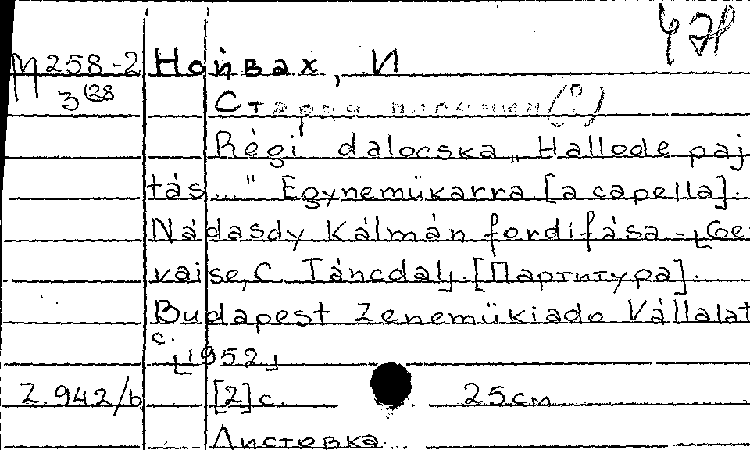 478
М258-2 Нойвах, И
3(28 Старая (?)
Régi dalocska „Hallode paj
tás..." Egyneműkarra [a capella].
Nádasdy Kálmán fordifása - Ger
vaise, C. Táncdal. [Партитура].
Budapest Zeneműkiado Vállalat
c. 1952
Z.942/b [2]c. 25cm
Листовка.